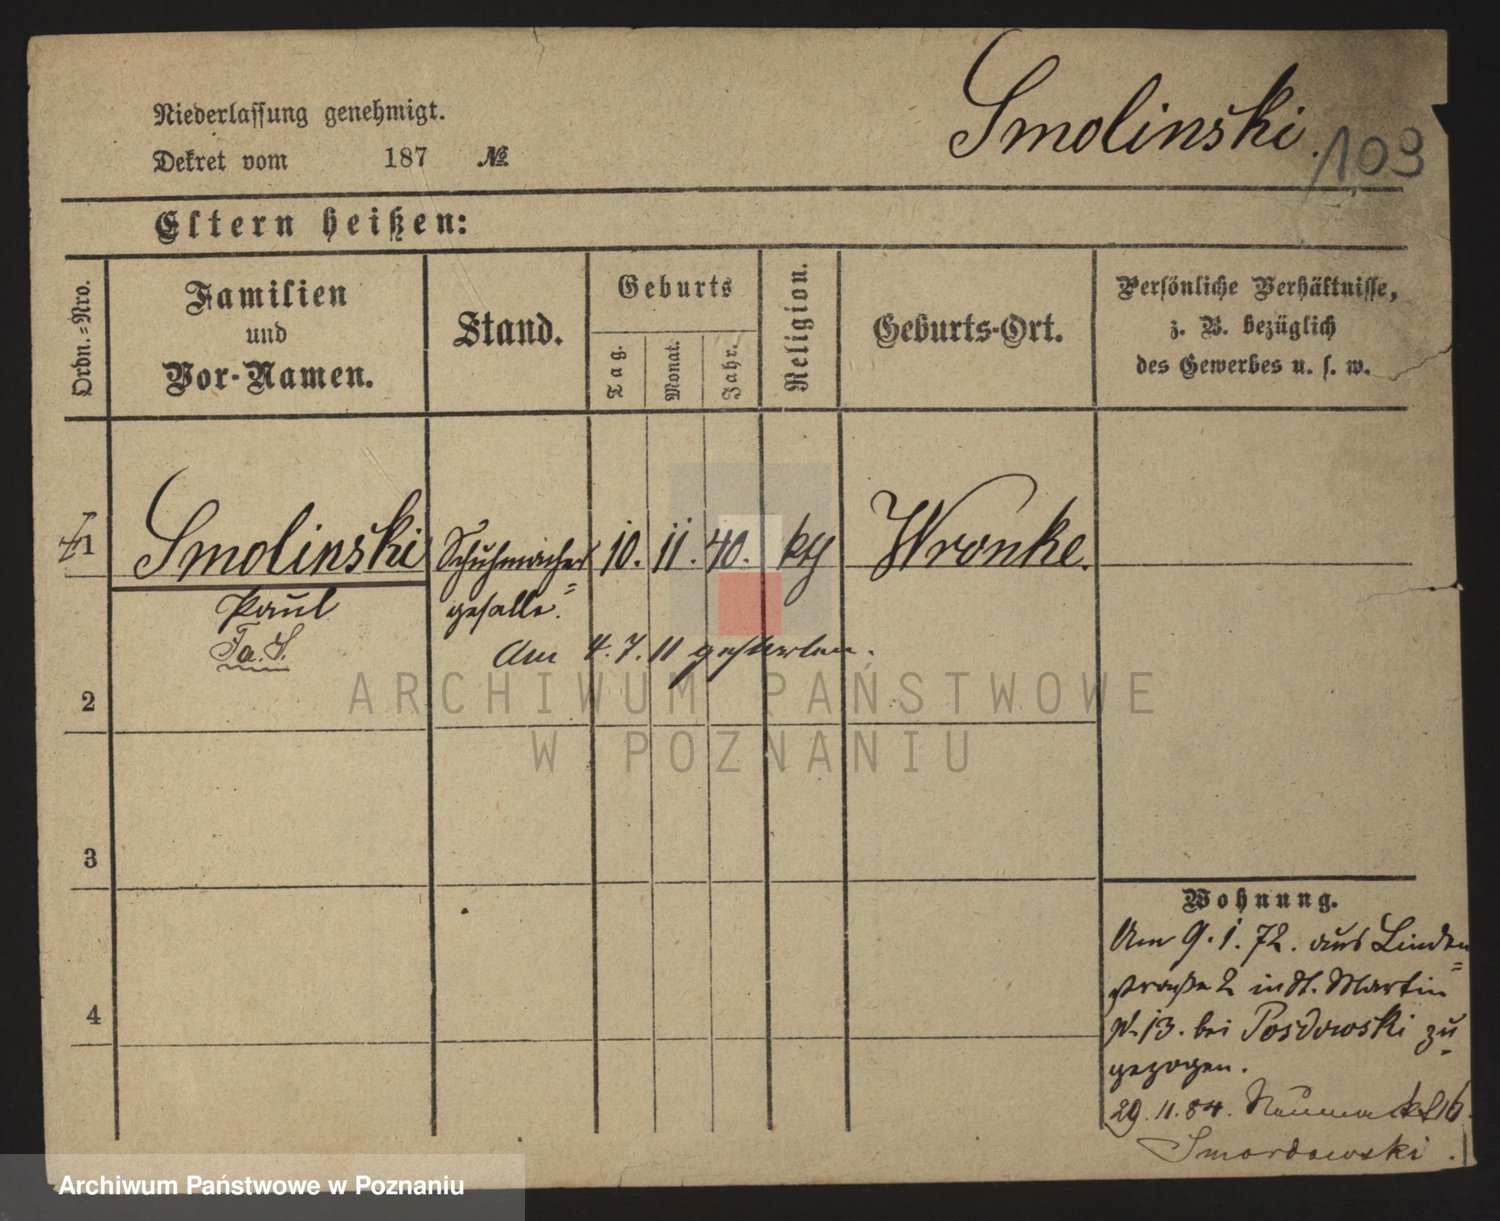 Smolinski.
109
Niederlassung genehmigt.
Dekret vom 187 №
Eltern heißen:
Ordn.-Nro.
Familien
und
Vor-Namen.
Stand.
Geburts
Tag.
Monat.
Jahr.
Religion.
Geburts-Ort.
Persönliche Verhältnisse,
z. B. bezüglich
des Gewerbes u. s. w.
1 Smolinski Schuhmacher= 10. 11. 40. kth Wronke.
Paul geselle.
Am 4. 7. 11 gestorben.
2
3
4
Wohnung.
Am 9. 1. 72. aus Linden=
straße 2 in St. Martin
13. bei Posdowski zu=
gezogen.
29. 11. 84.
Smordowski.
ARCHIWUM PAŃSTWOWE
W POZNANIU
Archiwum Państwowe w Poznaniu